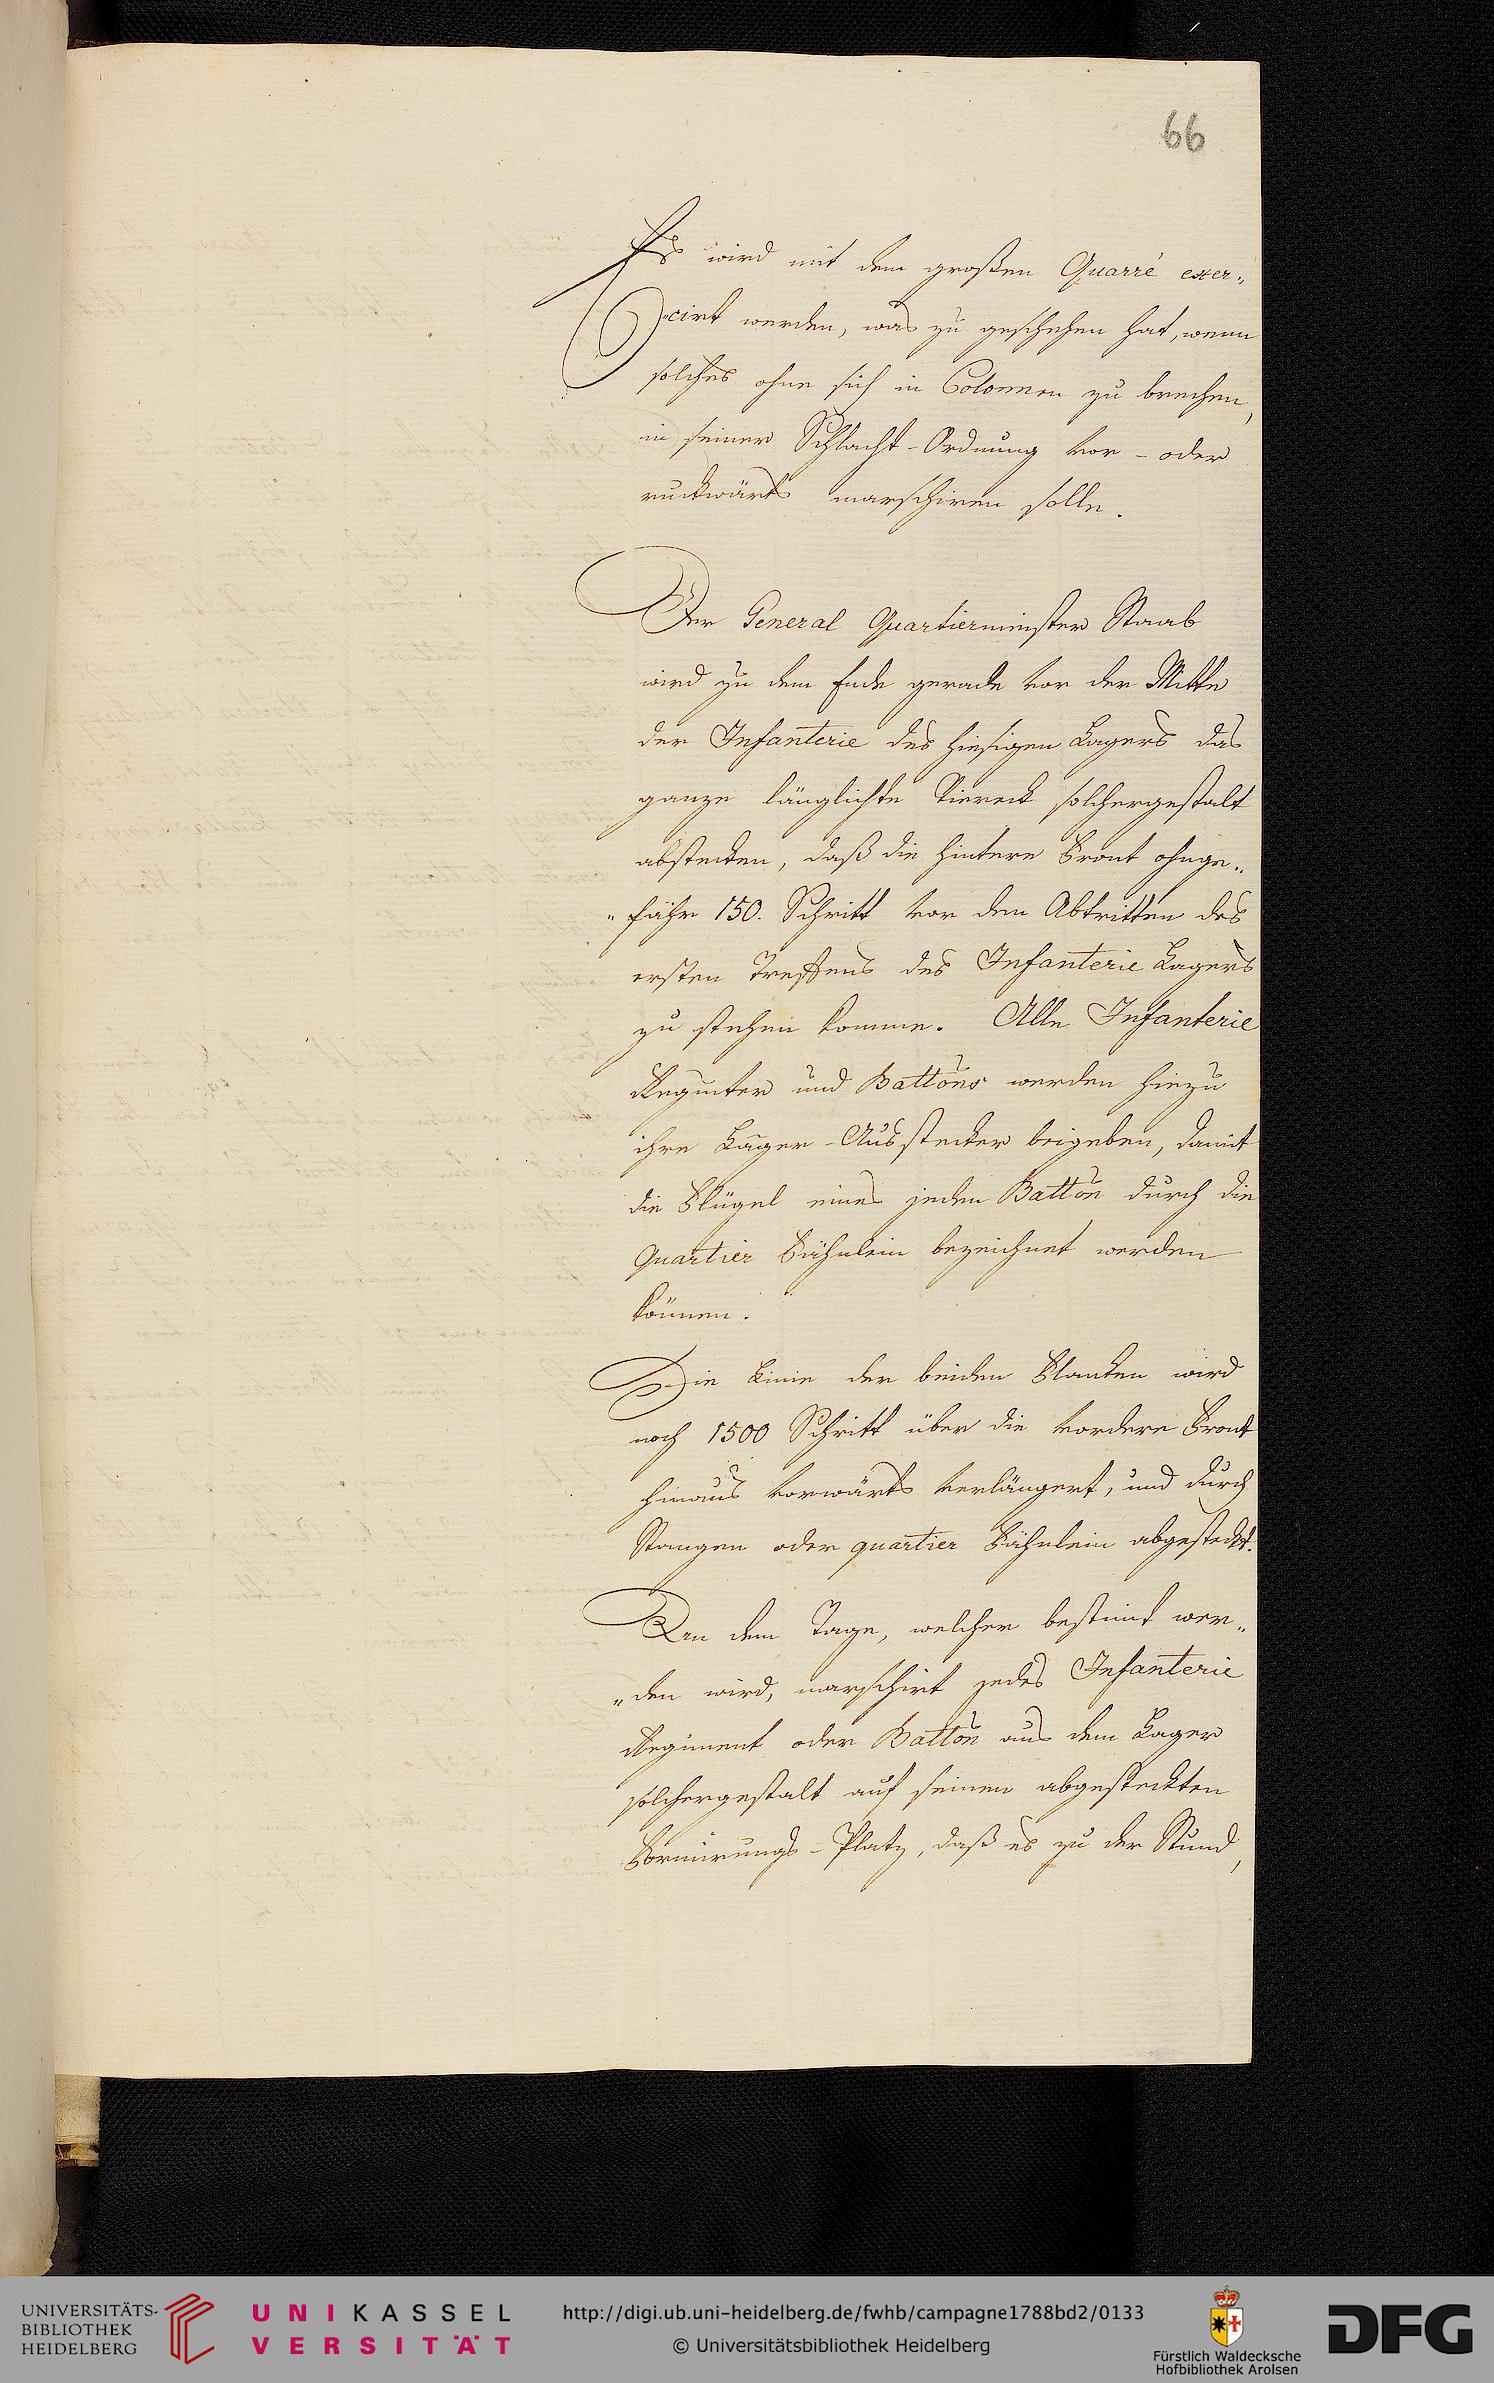 66
Es wird mit dem großen Quarré exer„
„cirt werden, was zu geschehen hat, wenn
solches ohne sich in Colonnen zu brechen,
in seiner Schlacht-Ordnung vor- oder
ruckwärts marschiren solle.
Der General Quartiermeister Staab
wird zu dem Ende gerade vor der Mitte
der Infanterie des hiesigen Lagers das
ganze länglichte Viereck solchergestalt
abstecken, daß die hintere Front ohnge„
„fähr 150. Schritt vor den Abtritten des
ersten Treffens des Infanterie Lagers
zu stehen komme. Alle Infanterie
Regmter und Battons werden hiezu
ihre Lager-Ausstecker beigeben, damit
die Flügel eines jeden Batton durch die
quartier Fähnlein bezeichnet werden
können.
Die Linie der beiden Flanken wird
noch 1500 Schritt über die vordere Front
hinaus vorwärts verlängert, und durch
Stangen oder quartier Fähnlein abgesteckt.
An dem Tage, welcher bestimt wer„
„den wird, marschirt jedes Infanterie
Regiment oder Batton aus dem Lager
solchergestalt auf seinen abgesteckten
Formirungs-Platz, daß es zu der Stund,
UNIVERSITÄTS-
BIBLIOTHEK
HEIDELBERG
UNIKASSEL
VERSITÄT
http://digi.ub.uni-heidelberg.de/fwhb/campagne1788bd2/0133
© Universitätsbibliothek Heidelberg
Fürstlich Waldecksche
Hofbibliothek Arolsen
DFG